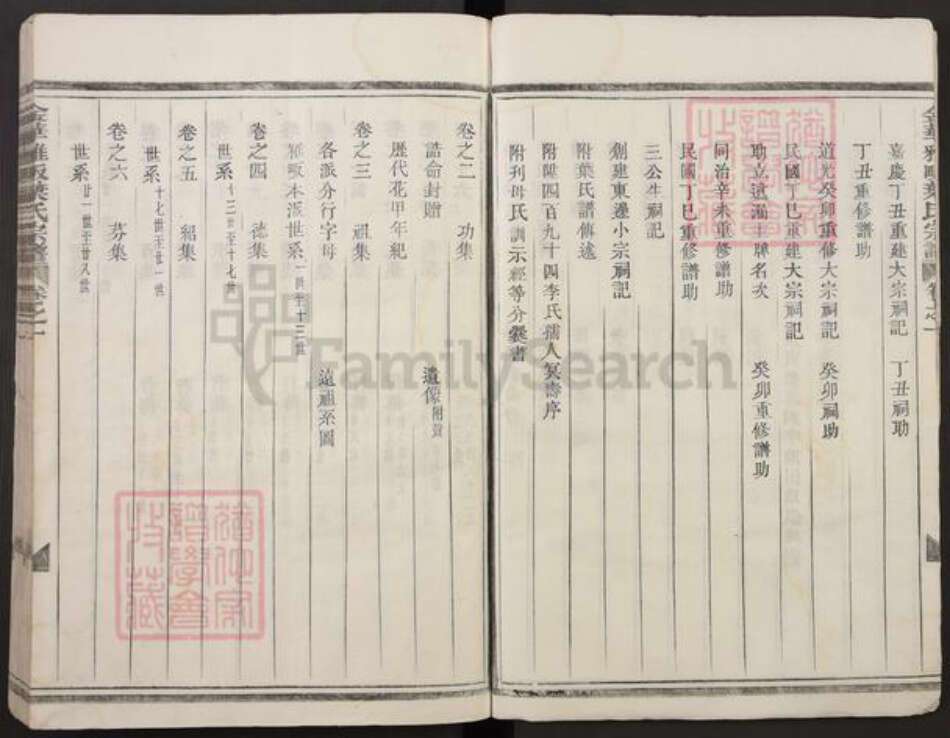 嘉慶丁丑重建大宗祠記　丁丑祠助
丁丑重修譜助
道光癸卯重修大宗祠記　癸卯祠助
民國丁巳重建大宗祠記
助立遺漏主牌名次　癸卯重修譜助
同治辛未重修譜助
民國丁巳重修譜助
三公生祠記
創建東邊小宗祠記
附葉氏譜傳述
附陞四百九十四李氏孺人冥壽序
附刊母氏訓示經等分爨書
卷之二　功集
誥命封贈　遺像附贊
歷代花甲年紀
卷之三　祖集
各派分行字母　遠祖系圖
雅畈本派世系一世至十三世
卷之四　德集
世系十三世至十七世
卷之五　紹集
世系十七世至廿一世
卷之六　芬集
世系廿一世至廿八世
金華雅畈葉氏宗譜　卷之一
FamilySearch